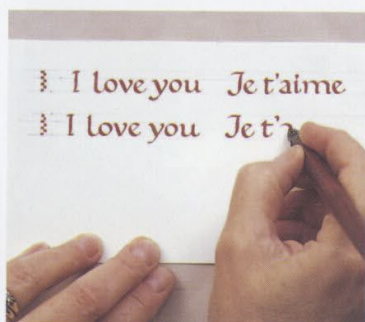 I love you Je t'aime
I love you Je t'a